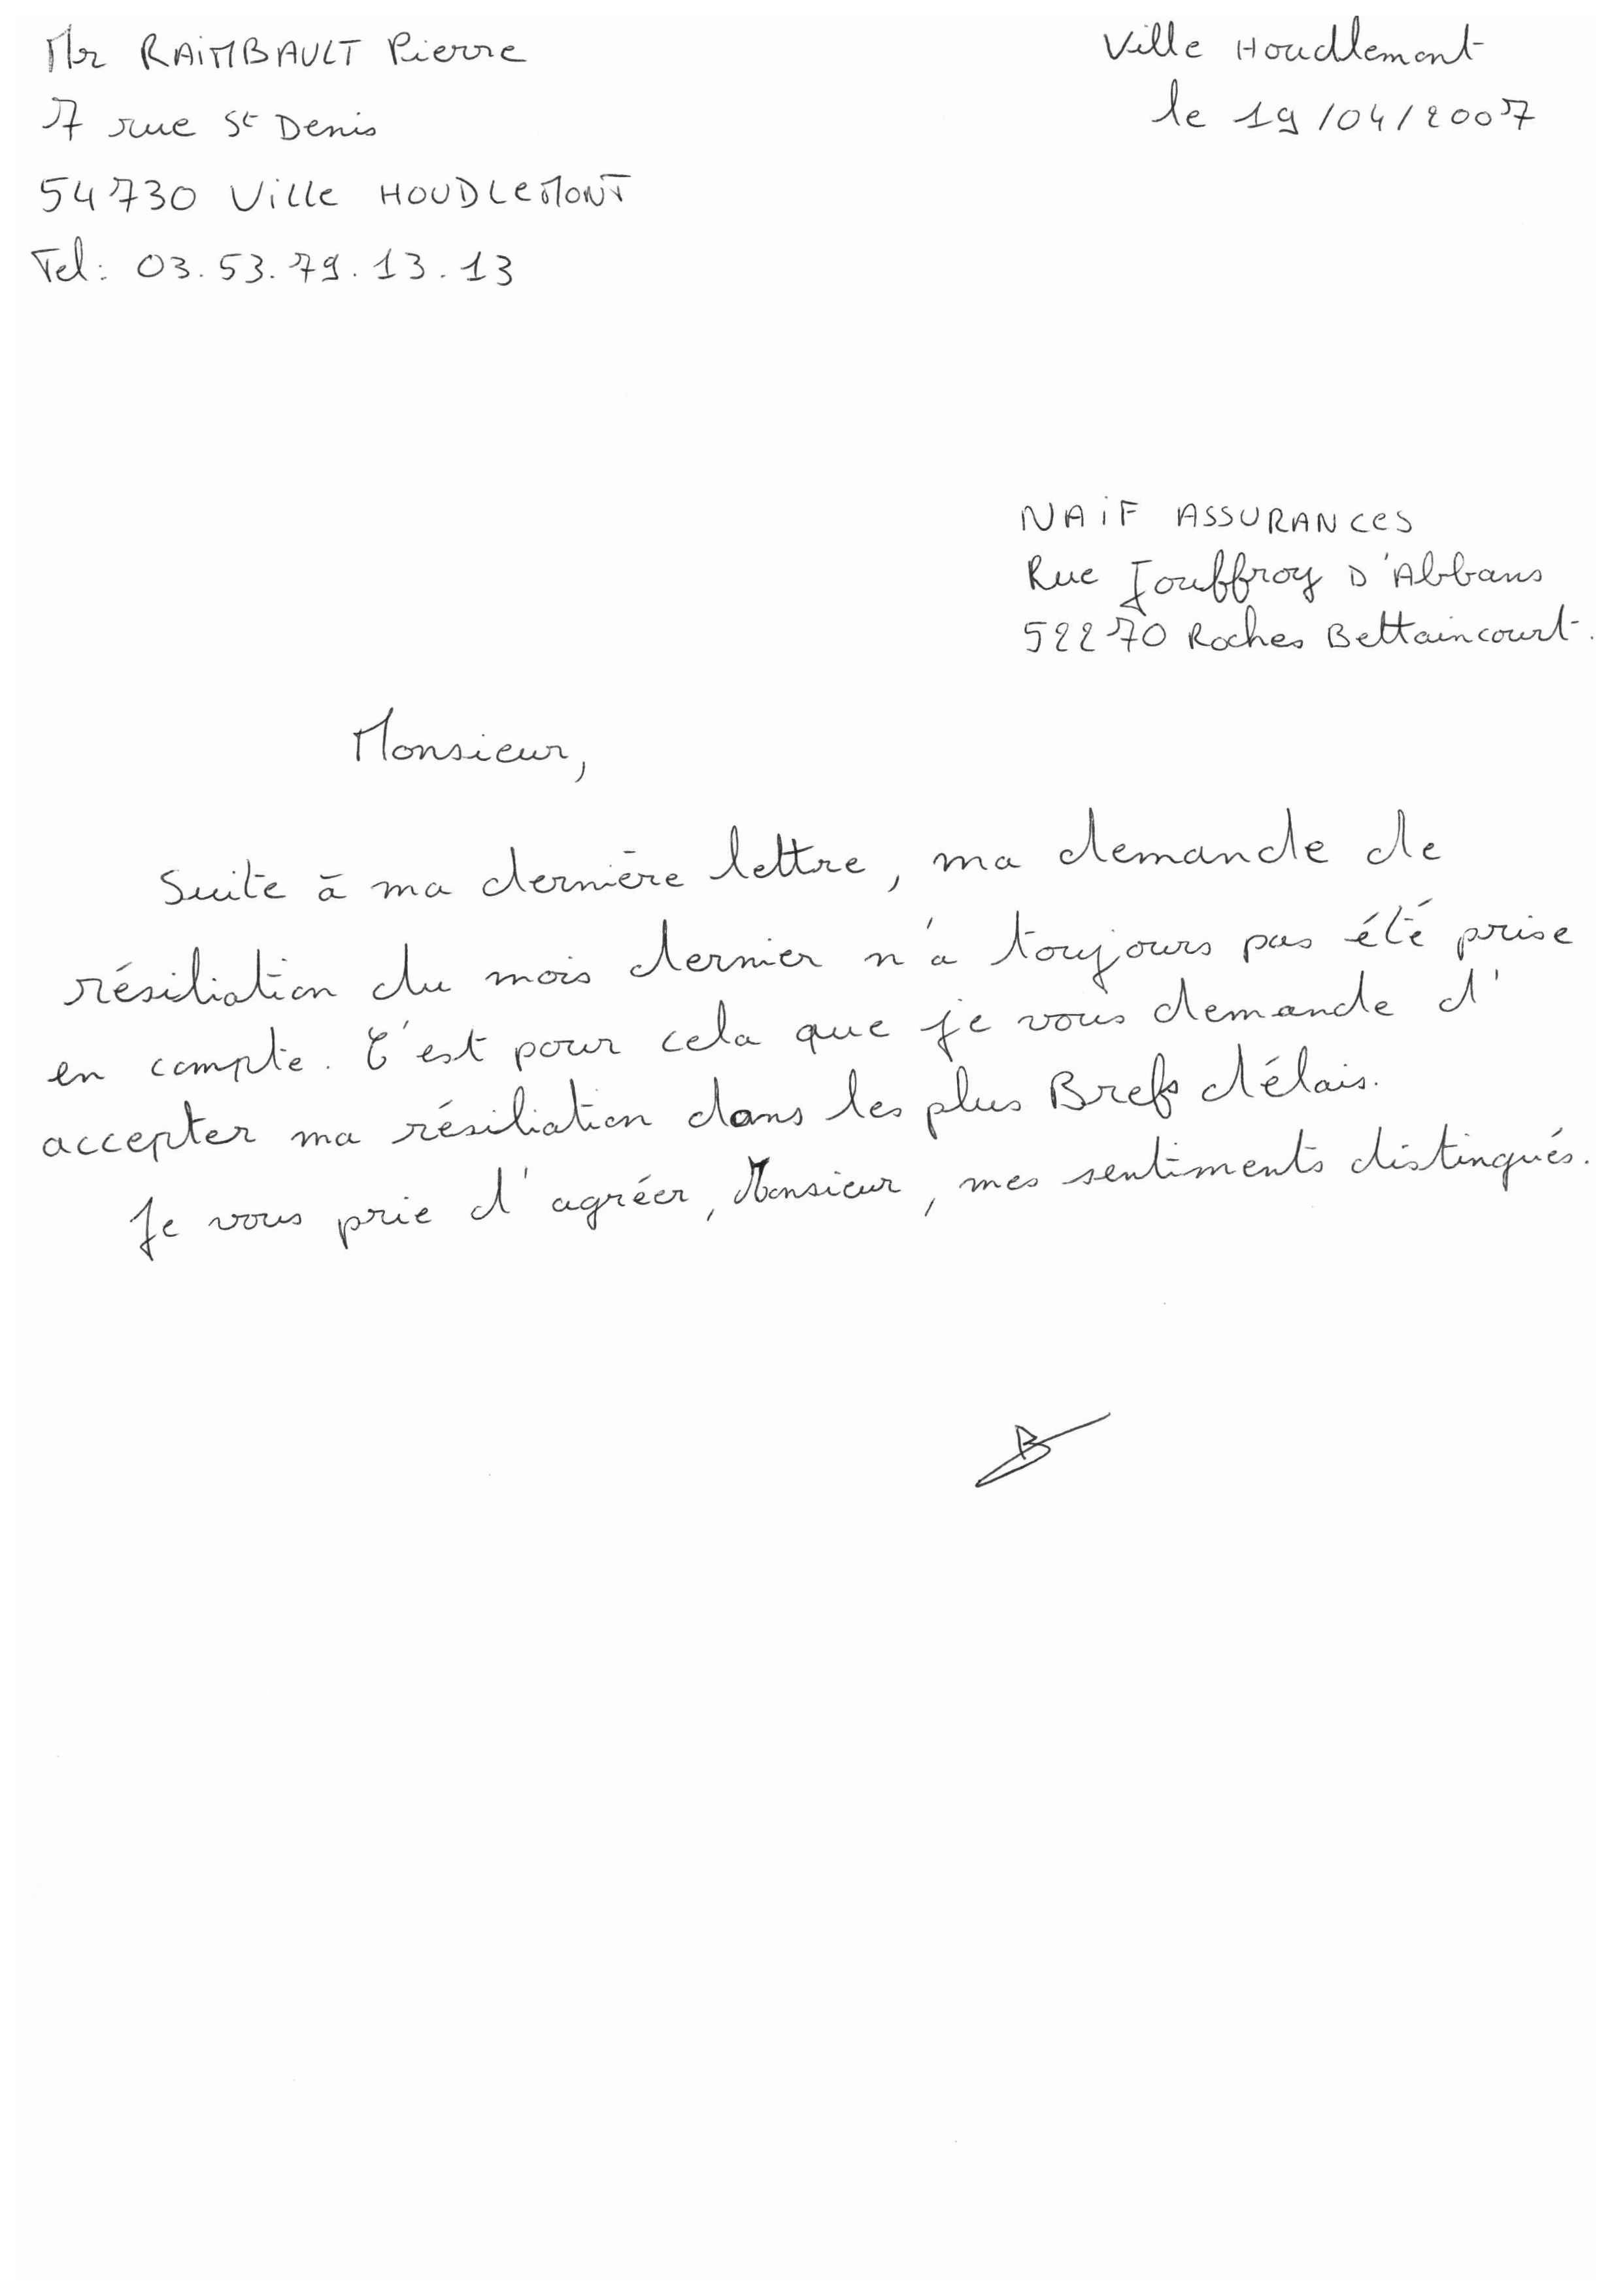 Mr RAIMBAULT Pierre
7 rue St Denis
54730 Ville HOUDLEMONT
Tel: 03.53.79.13.13
Ville Houdlemont
le 19/04/2007
NAIF ASSURANCES
Rue Jouffroy D'Abbans
52270 Roches Bettaincourt.
Monsieur,
Suite à ma dernière lettre, ma demande de
résiliation du mois dernier n'a toujours pas été prise
en compte. C'est pour cela que je vous demande d'
accepter ma résiliation dans les plus Brefs délais.
Je vous prie d'agréer, Monsieur, mes sentiments distingués.